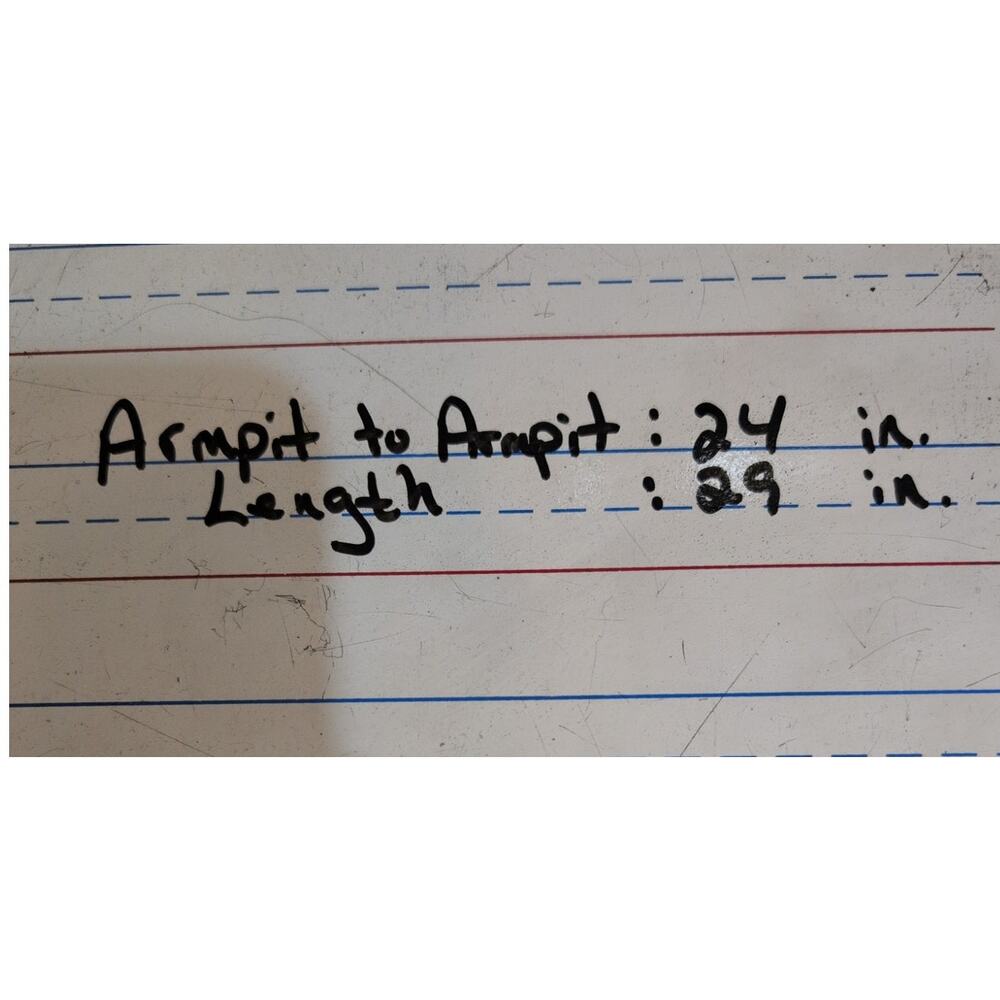 Armpit to Armpit : 24 in.
Length : 29 in.